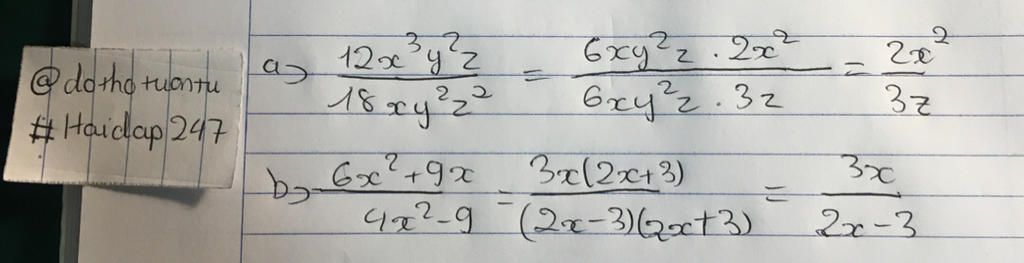 @dothotuantu
#Haidap247
a) 12x³y²z / 18xy²z² = 6xy²z . 2x² / 6xy²z . 3z = 2x² / 3z
b) 6x²+9x / 4x²-9 = 3x(2x+3) / (2x-3)(2x+3) = 3x / 2x-3